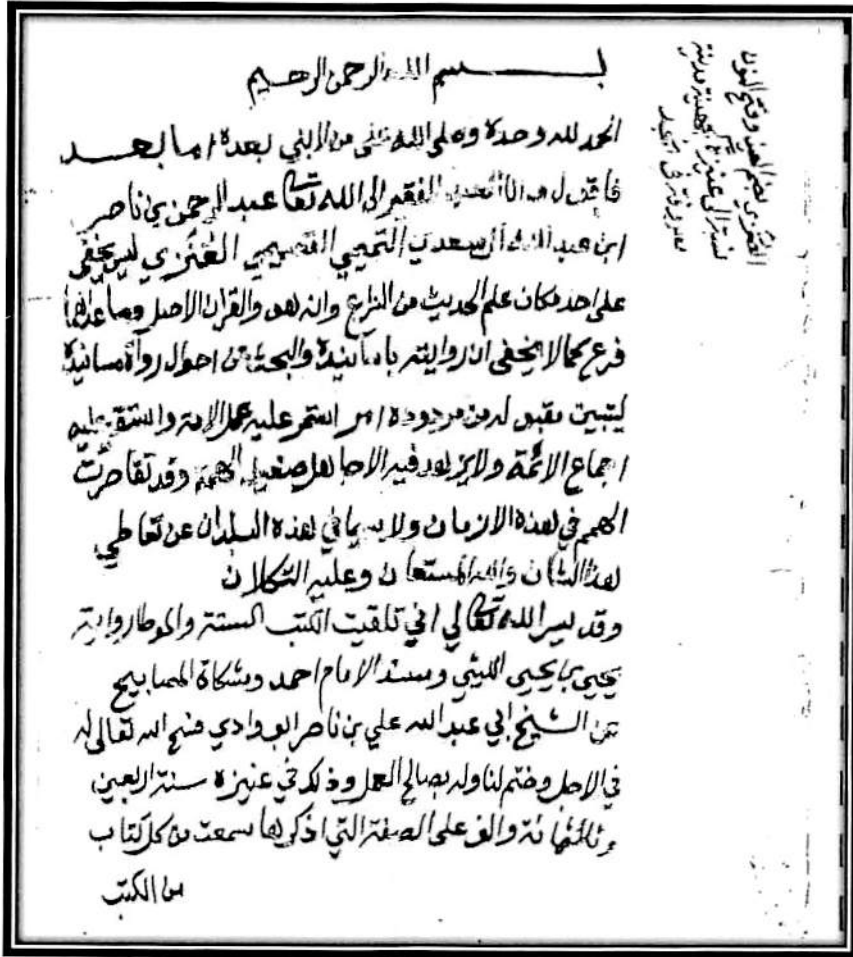 بسم الله الرحمن الرحيم
الحمد لله وحدة وصلى الله على من لا نبي بعدة اما بعد
فاقول وانا العبد الفقير الى الله تعا عبد الرحمن بن ناصر
ابن عبد الله آل سعدي التميمي القصيمي العُنَزي ليس يخفى
على احد مكان علم الحديث من الشرع وانه هو والقران الاصل وما عداهما
فرع كما لا يخفى ان روايته باسانيدة والبحث عن احوال رواة مسانيدة
ليتبين مقبوله من مردودة امر استمر عليه عمل الامة واستقر عليه
اجماع الائمة ولا يزهد فيه الا جاهل ضعيف الهمة وقد تقاصرت
الهمم في هذة الازمان ولا سيما في هذة البلدان عن تعاطي
هذا الشان والله المستعان وعليه التكلان
وقد يسر الله تعالي اني تلقيت الكتب الستة والموطا رواية
يحيى بن يحيى الليثي ومسند الامام احمد ومشكاة المصابيح
عن الشيخ ابي عبد الله علي بن ناصر ابو وادي فسح الله تعالى له
في الاجل وختم لنا وله بصالح العمل وذلك في عنيزة سنة اربعين
وثلثمائة والف على الصفة التي اذكرها سمعت من كل كتاب
من الكتب
العُنَزي بضم العين وفتح النون
نسبة الى عنيزة مدينة